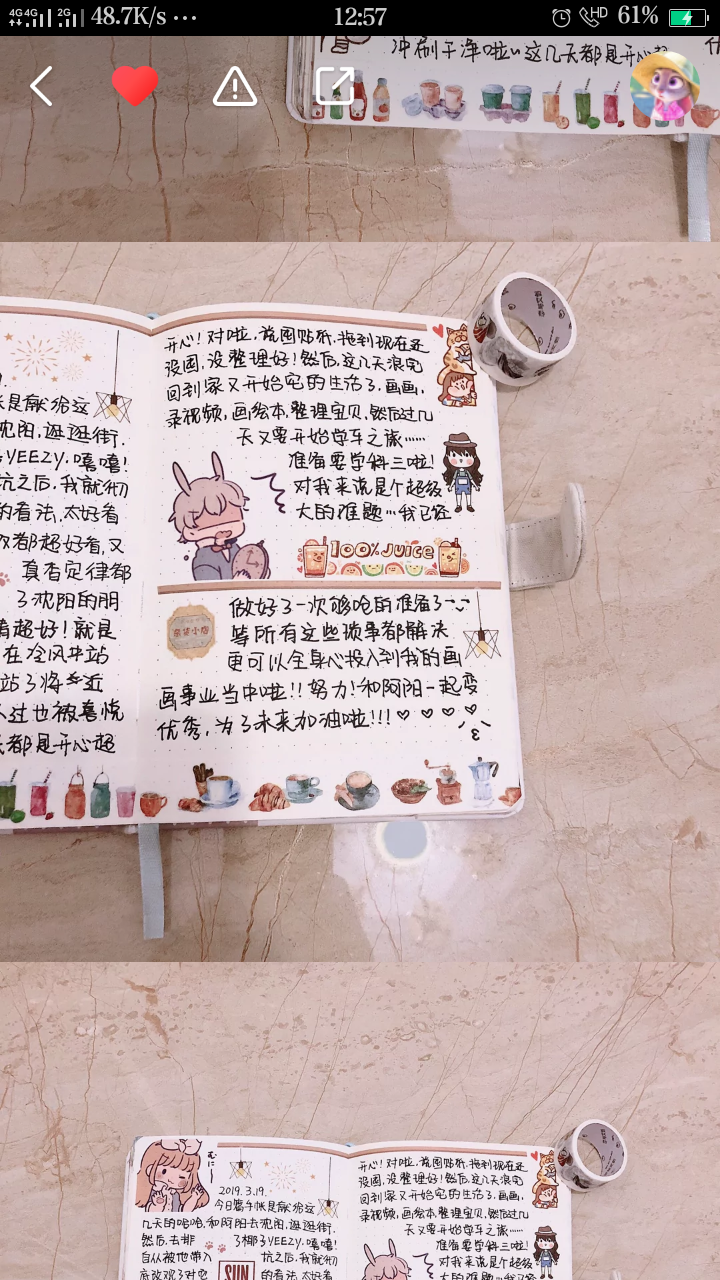 4G 4G 2G 48.7K/s ... 12:57 HD 61%
冲刷干净啦~这几天都是开心超
开心!对啦,氛围贴纸,拖到现在还
没图,没整理好!然后,这几天浪完
回到家又开始宅的生活了,画画,
录视频,画绘本,整理宝贝,然后过几
天又要开始学车之旅……
准备要学科三啦!
对我来说是个超级
大的难题…我已经
100% JUICE
做好了一次够呛的准备了~
杂货小店
等所有这些琐事都解决
更可以全身心投入到我的画
画事业当中啦!!努力!和阿阳一起变
优秀,为了未来加油啦!!!
帐是献给这
沈阳,逛逛街.
YEEZY.嘻嘻!
坑之后,我就彻
的看法,太好看
双都超好看,又
真香定律都
了沈阳的朋
超好!就是
在冷风中站
站了将近
过也被喜悦
都是开心超
むにー
2019.3.19.
今日蜀午帐是献给这
几天的哈哈,和阿阳去沈阳,逛逛街.
然后,去排
了椰子YEEZY.嘻嘻!
自从被他带入
坑之后,我就彻
底改观了对它
的看法,太好看
SUN
开心!对啦,氛围贴纸,拖到现在还
没图,没整理好!然后,这几天浪完
回到家又开始宅的生活了,画画,
录视频,画绘本,整理宝贝,然后过几
天又要开始学车之旅……
准备要学科三啦!
对我来说是个超级
大的难题…我已经